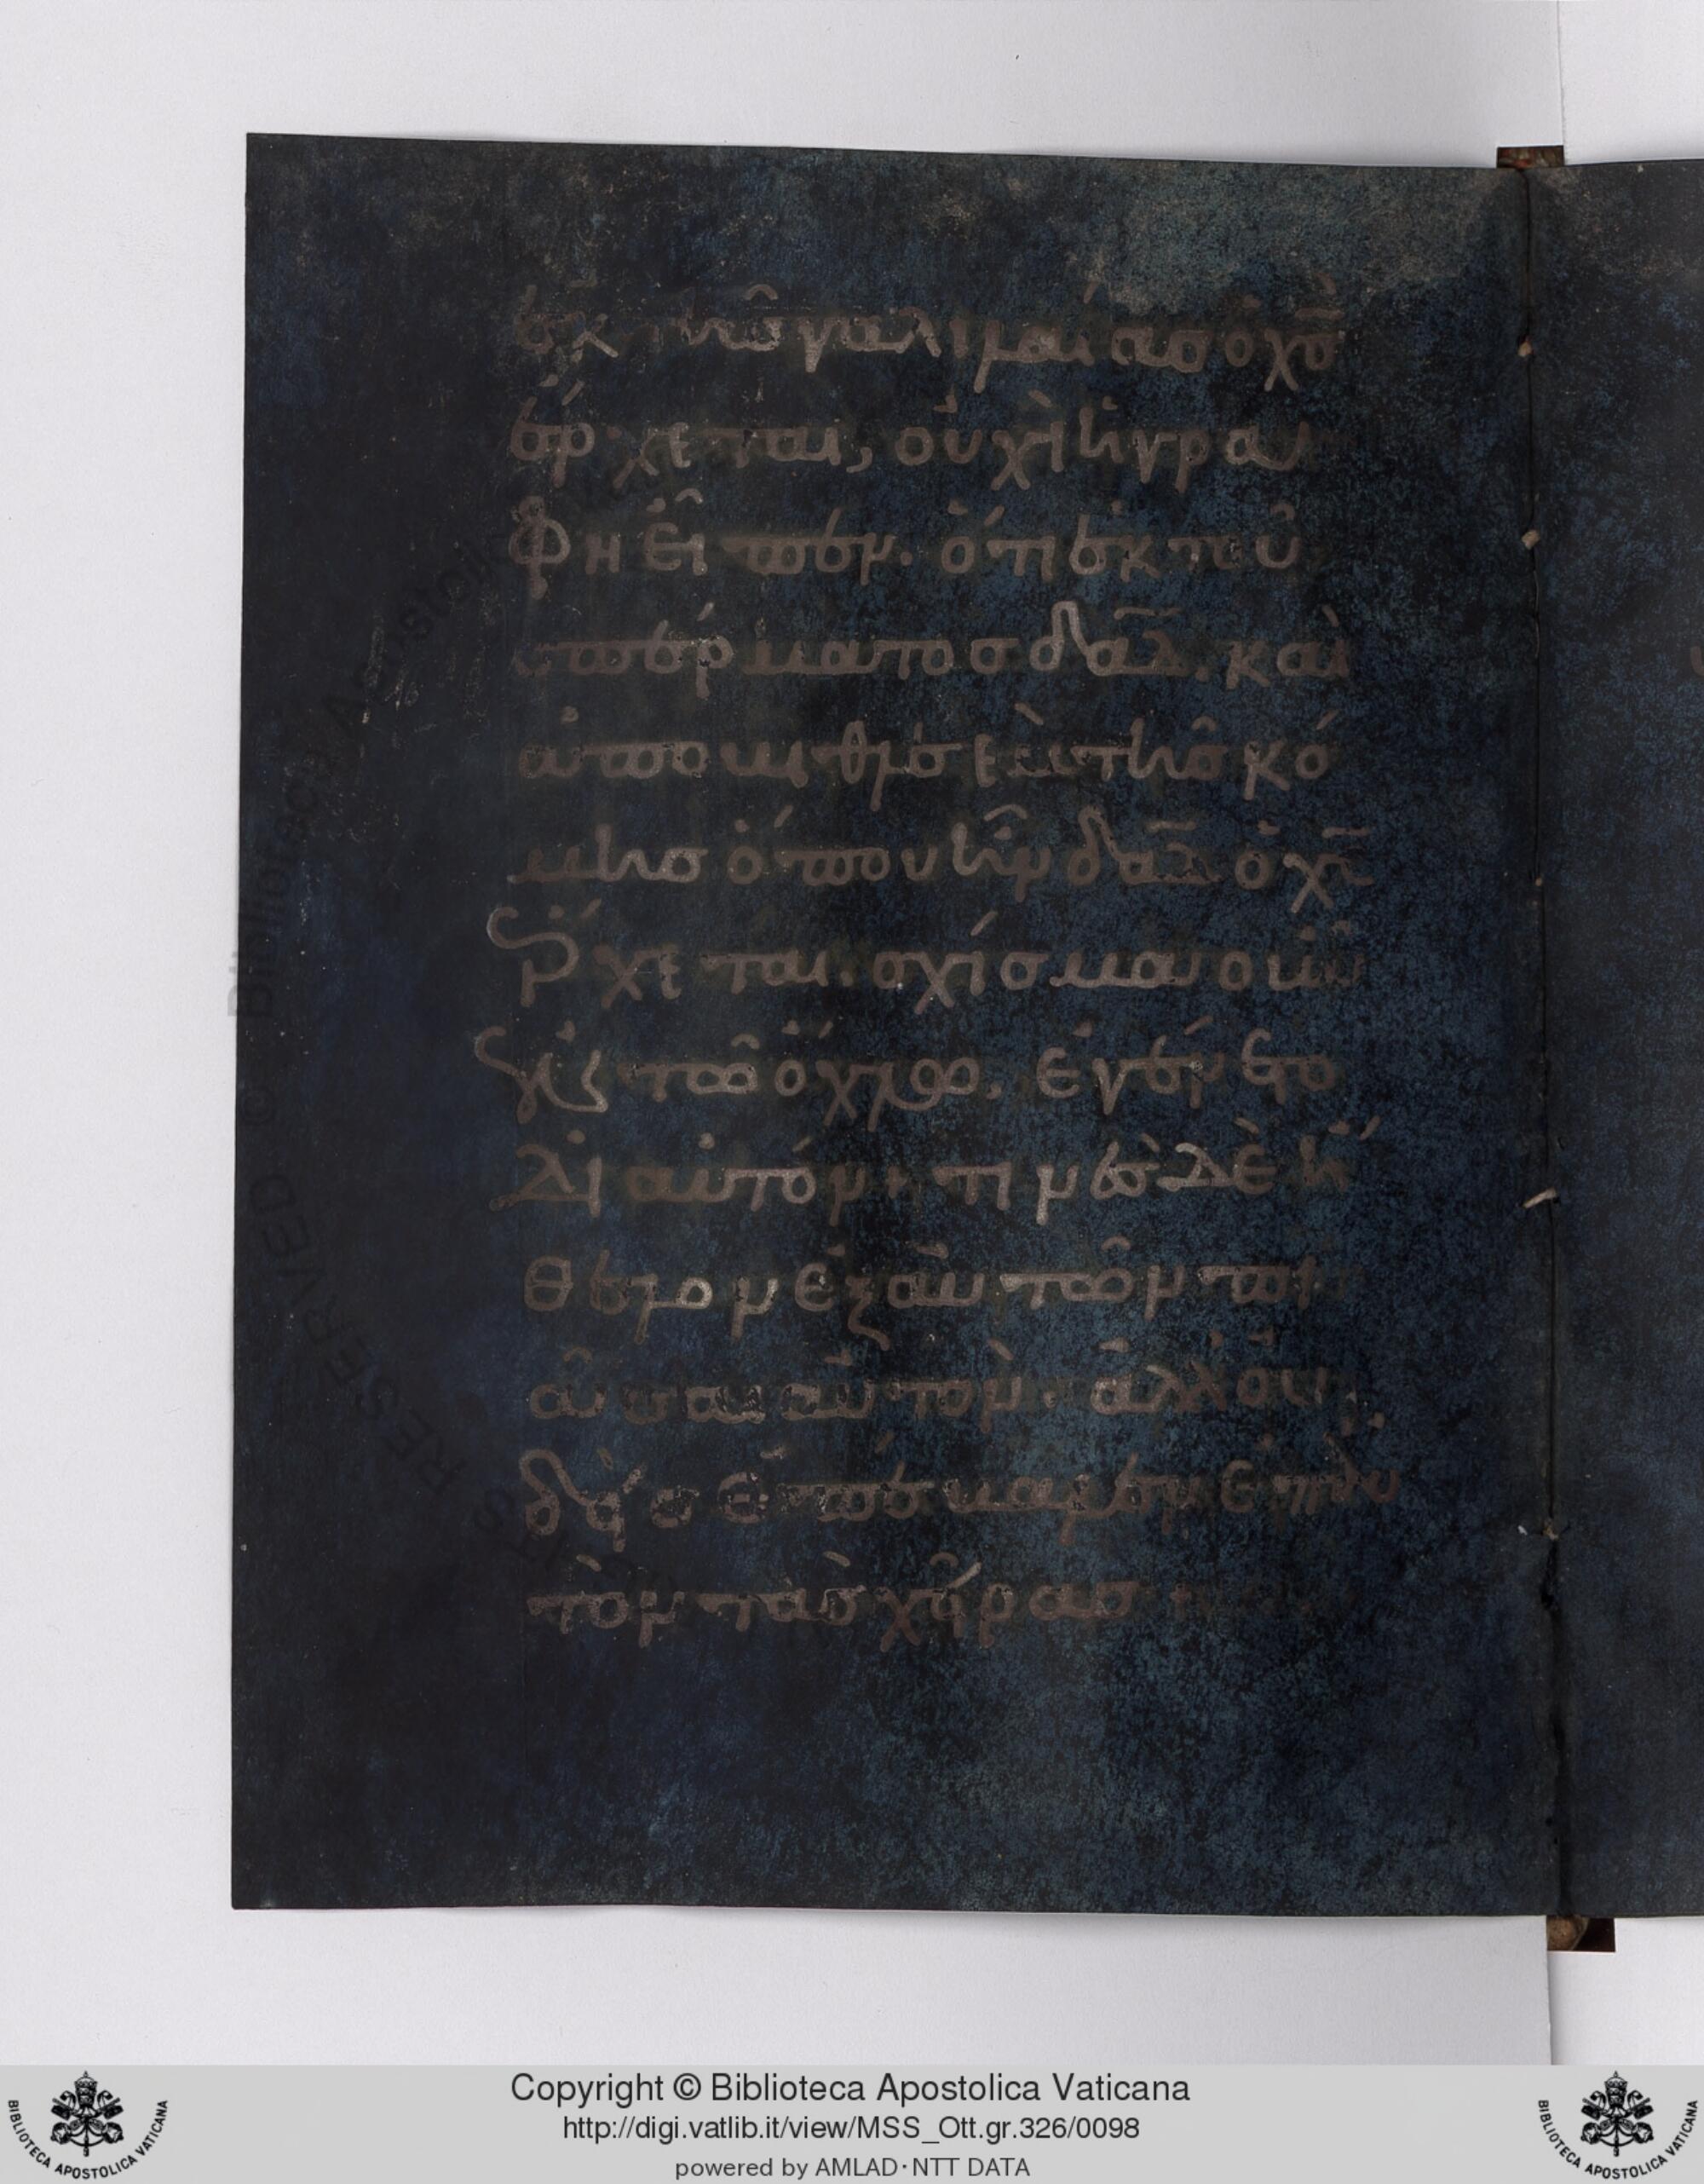 ἐκ τῆς γαλιλαίας ὁ χς
ἔρχεται, οὐχὶ ἡ γρα
φὴ εἶπεν. ὅτι ἐκ τοῦ
σπέρματος δαδ. καὶ
ἀπὸ βηθλεὲμ τῆς κώ
μης ὅπου ἦν δαδ ὁ χς
ἔρχεται. σχίσμα οὖν
ἐν τῶ ὄχλω. ἐγένετο
δι αὐτόν. τινὲς δὲ ἤ
θελον ἐξ αὐτῶν πι
άσαι αὐτὸν. ἀλλ οὐ
δεὶς ἐπέβαλεν ἐπ αὐ
τὸν τὰς χεῖρας
Copyright © Biblioteca Apostolica Vaticana
http://digi.vatlib.it/view/MSS_Ott.gr.326/0098
powered by AMLAD·NTT DATA
BIBLIOTECA APOSTOLICA VATICANA
BIBLIOTECA APOSTOLICA VATICANA